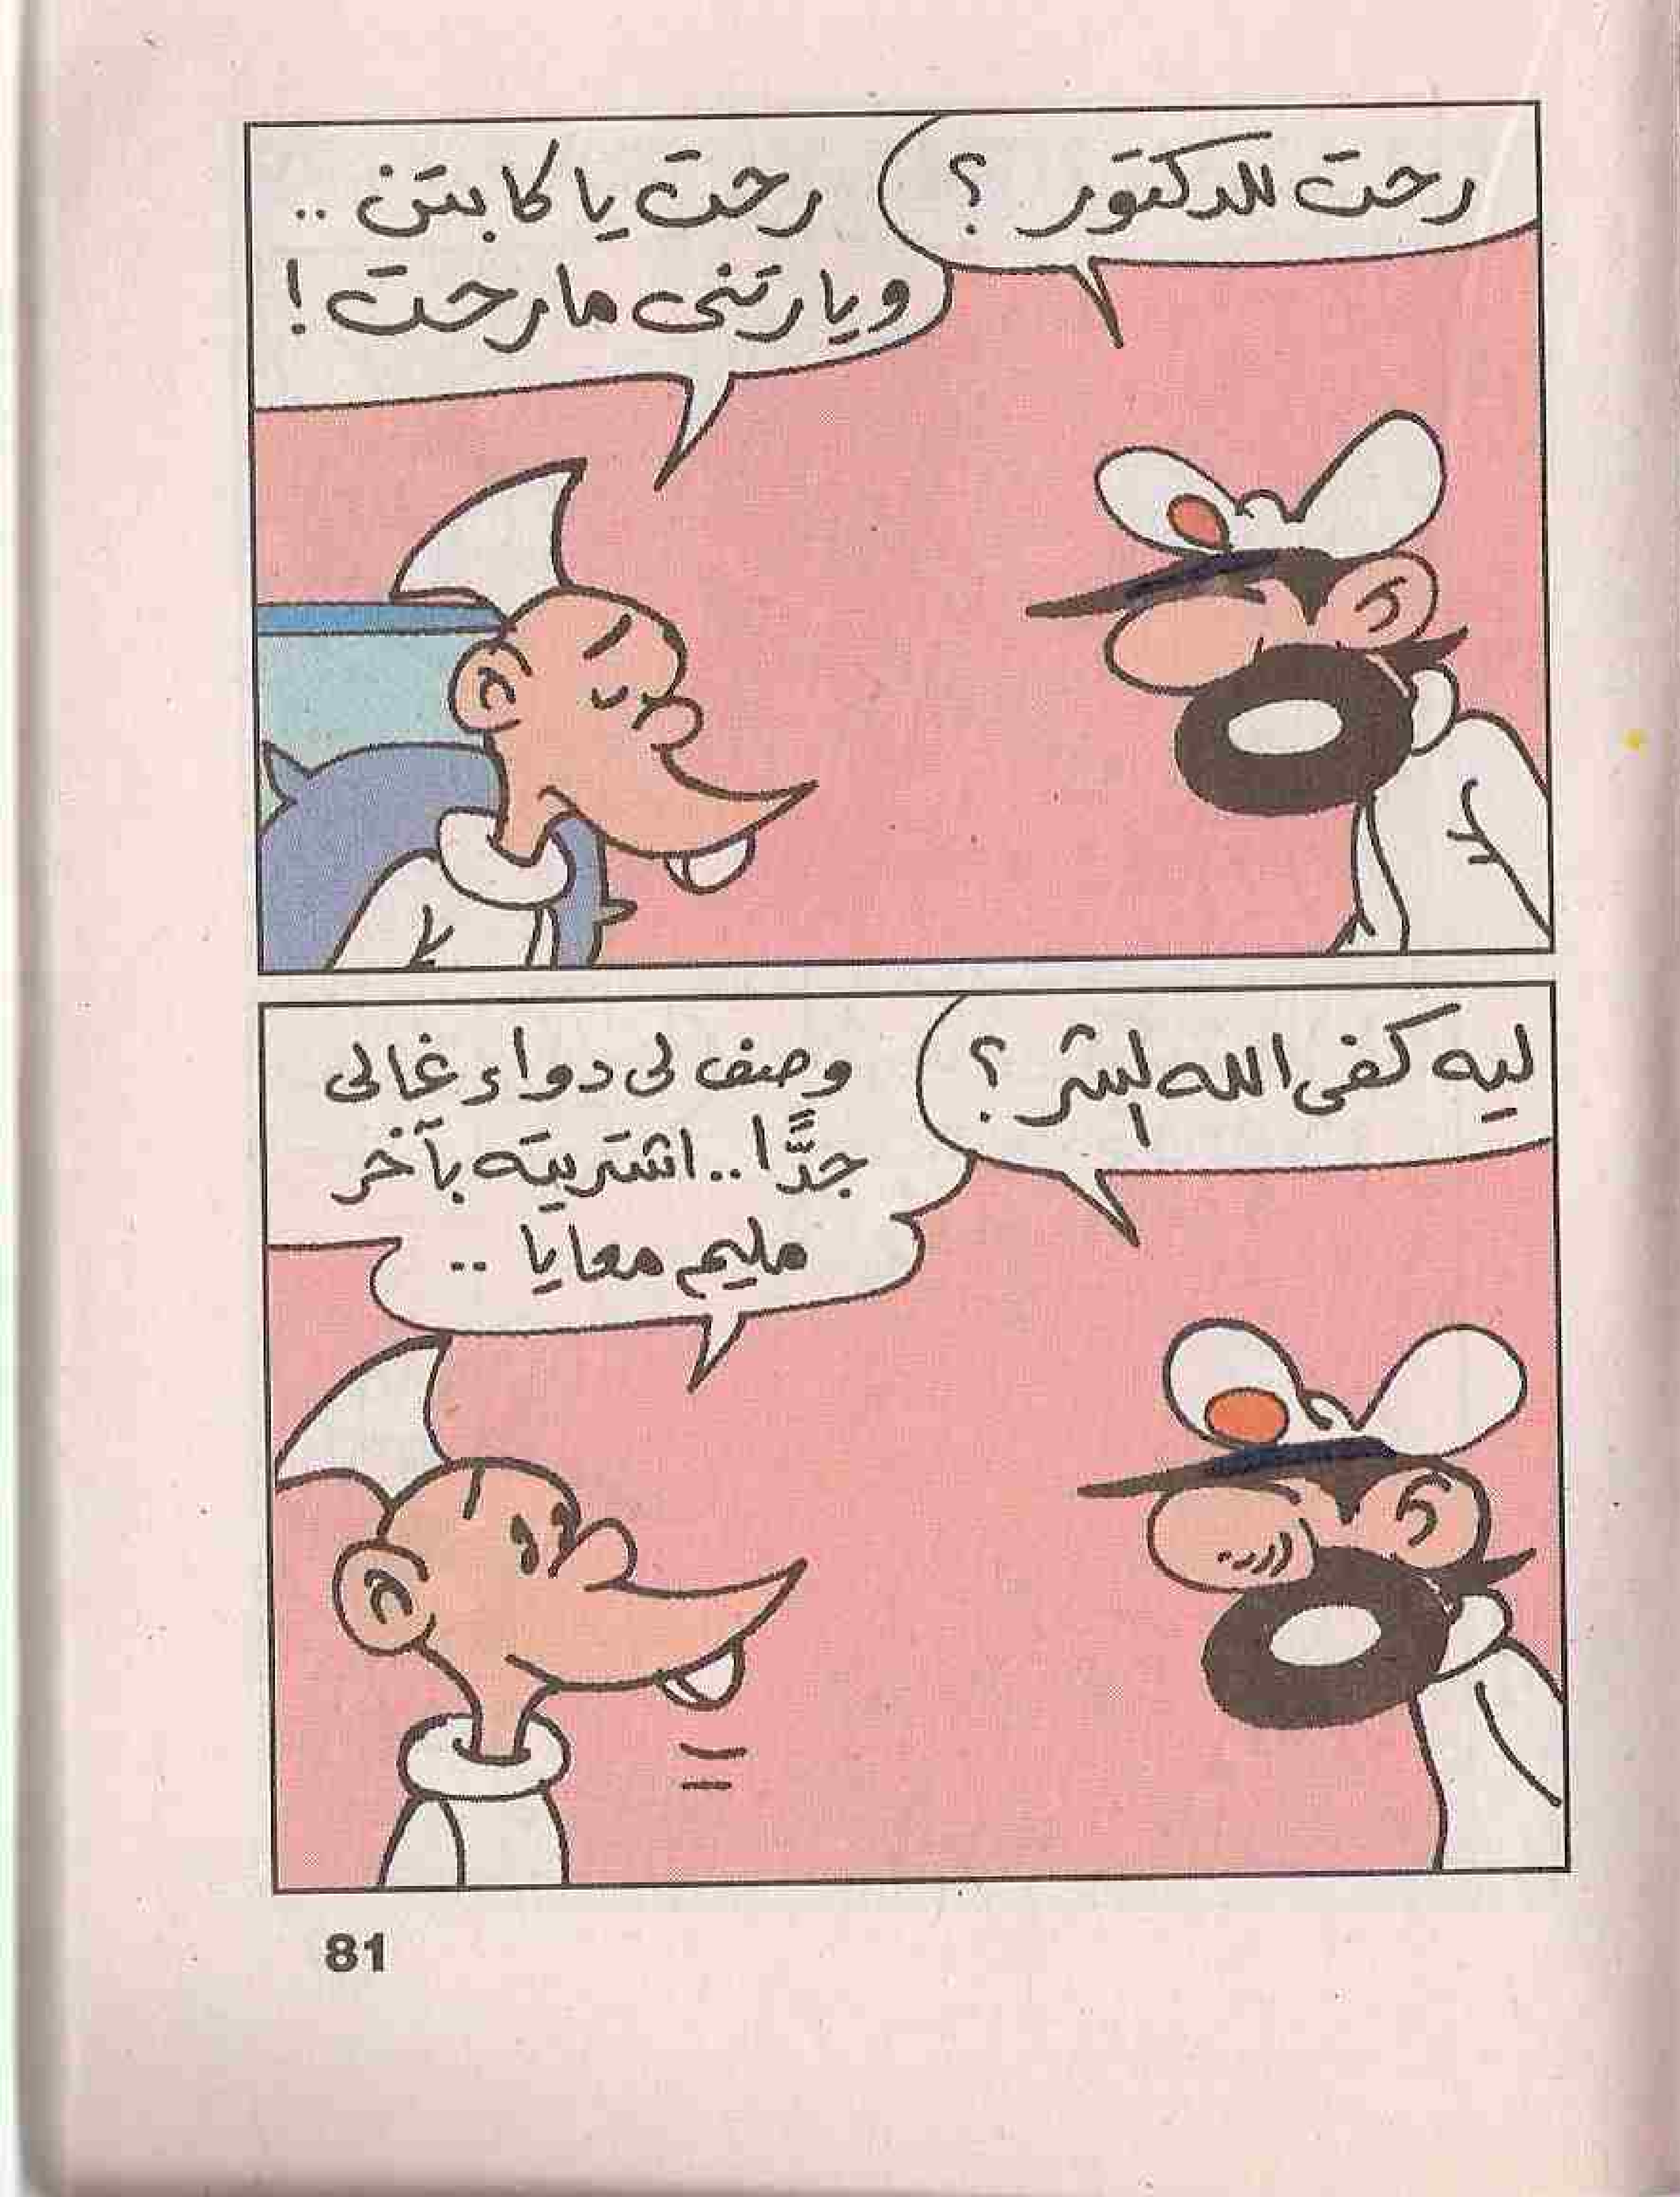 رحت للدكتور ؟
رحت يا كابتن ..
ويارتنى مارحت !
ليه كفى الله الشر ؟
وصف لى دواء غالى
جدًّا .. اشتريته بآخر
مليم معايا ..
81